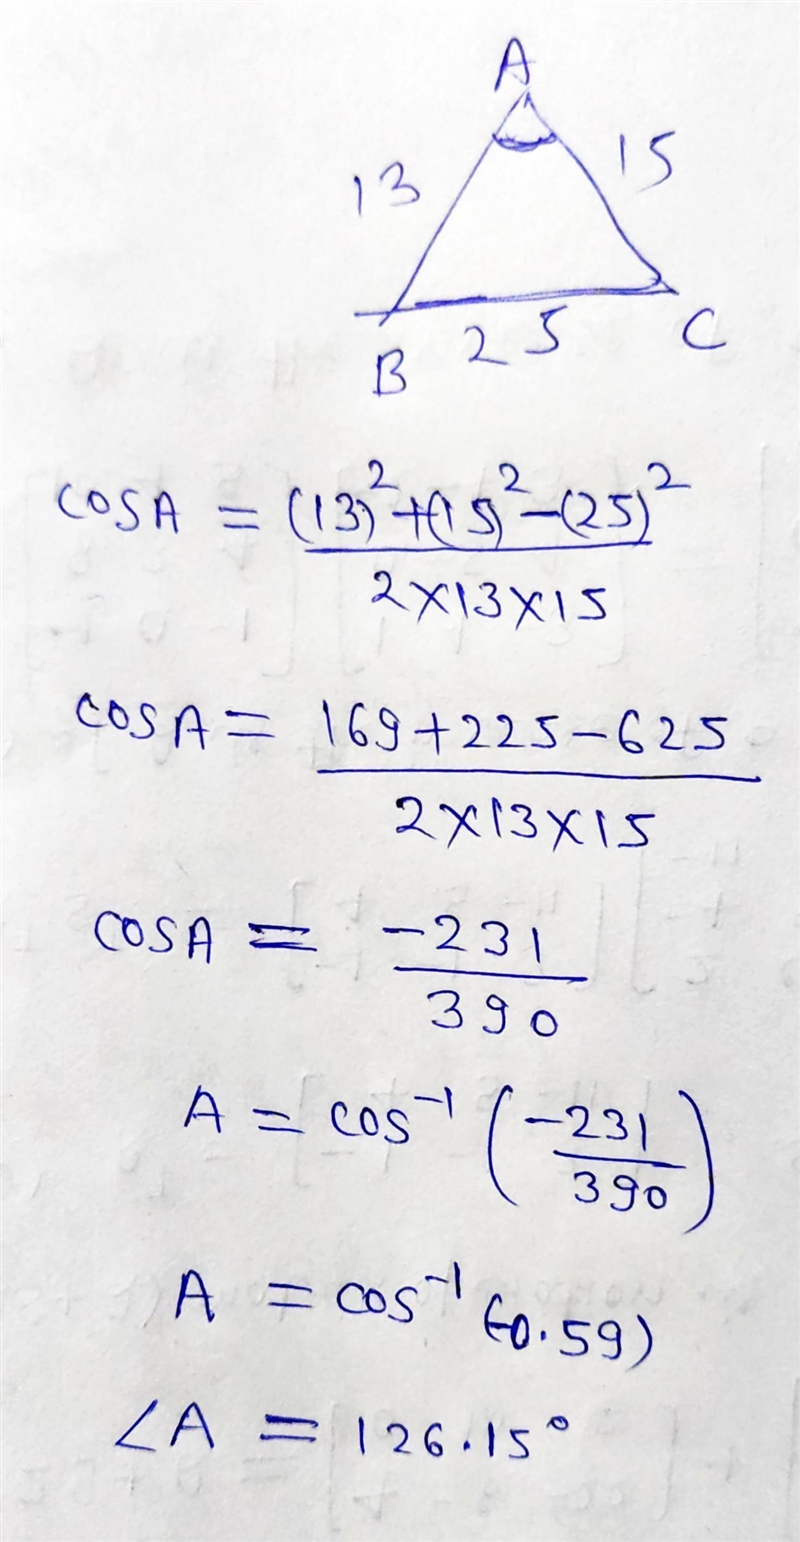 A
13 15
B 25 C
COSA = (13)²+(15)²-(25)² / 2×13×15
COSA = 169+225-625 / 2×13×15
COSA = -231 / 390
A = cos⁻¹ (-231 / 390)
A = cos⁻¹ (-0.59)
∠A = 126.15°